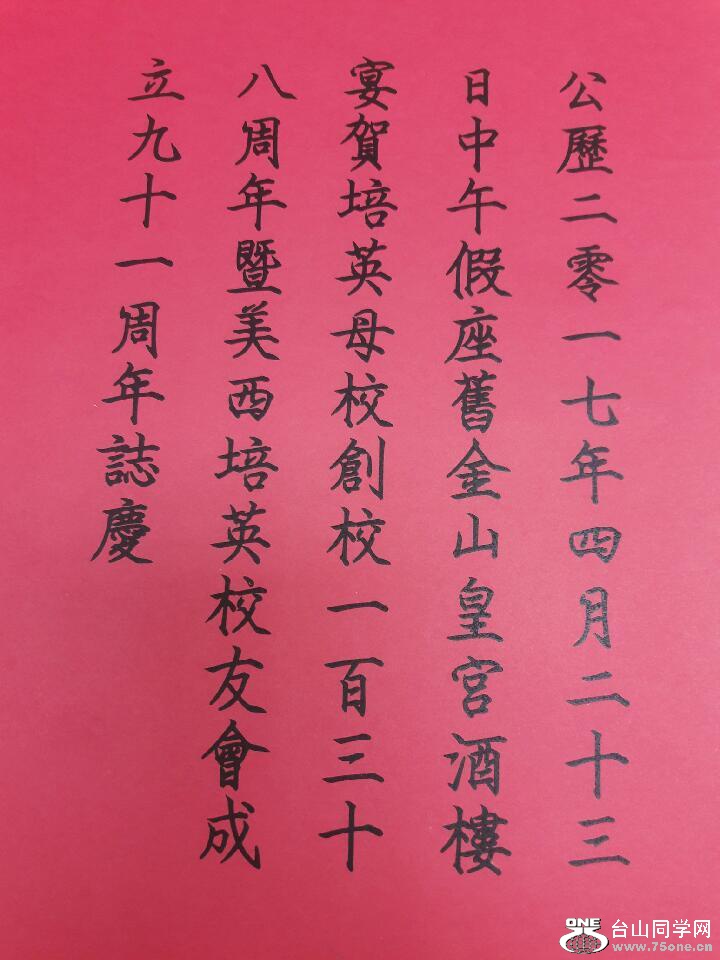 公歷二零一七年四月二十三
日中午假座舊金山皇宮酒樓
宴賀培英母校創校一百三十
八周年暨美西培英校友會成
立九十一周年誌慶
ONE 台山同学网
www.75one.cn